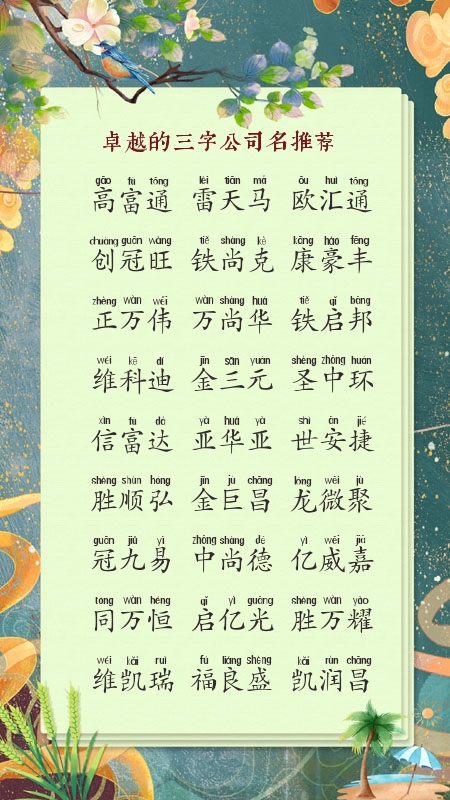 卓越的三字公司名推荐
gāo fù tōng léi tiān mǎ ōu huì tōng
高富通 雷天马 欧汇通
chuàng guān wàng tiě shàng kè kāng háo fēng
创冠旺 铁尚克 康豪丰
zhèng wàn wěi wàn shàng huá tiě qǐ bāng
正万伟 万尚华 铁启邦
wéi kē dí jīn sān yuán shèng zhōng huán
维科迪 金三元 圣中环
xìn fù dá yà huá yà shì ān jié
信富达 亚华亚 世安捷
shèng shùn hóng jīn jù chāng lóng wēi jù
胜顺弘 金巨昌 龙微聚
guān jiǔ yì zhōng shàng dé yì wēi jiā
冠九易 中尚德 亿威嘉
tóng wàn héng qǐ yì guāng shèng wàn yào
同万恒 启亿光 胜万耀
wéi kǎi ruì fú liáng shèng kǎi rùn chāng
维凯瑞 福良盛 凯润昌